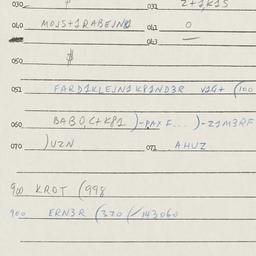 030 032 Z+1,K1S
040 MOJS+1RABEJN 041 O
043 —
050 $
051 FARD1KLEJN1K81ND3R V1G+ (100
060 BABO,C+K81 )-PAX F... )-Z1M3RF
070 )UZN 071 AHUZ
900 KROT (998
900 ERN3R (370 (/143060